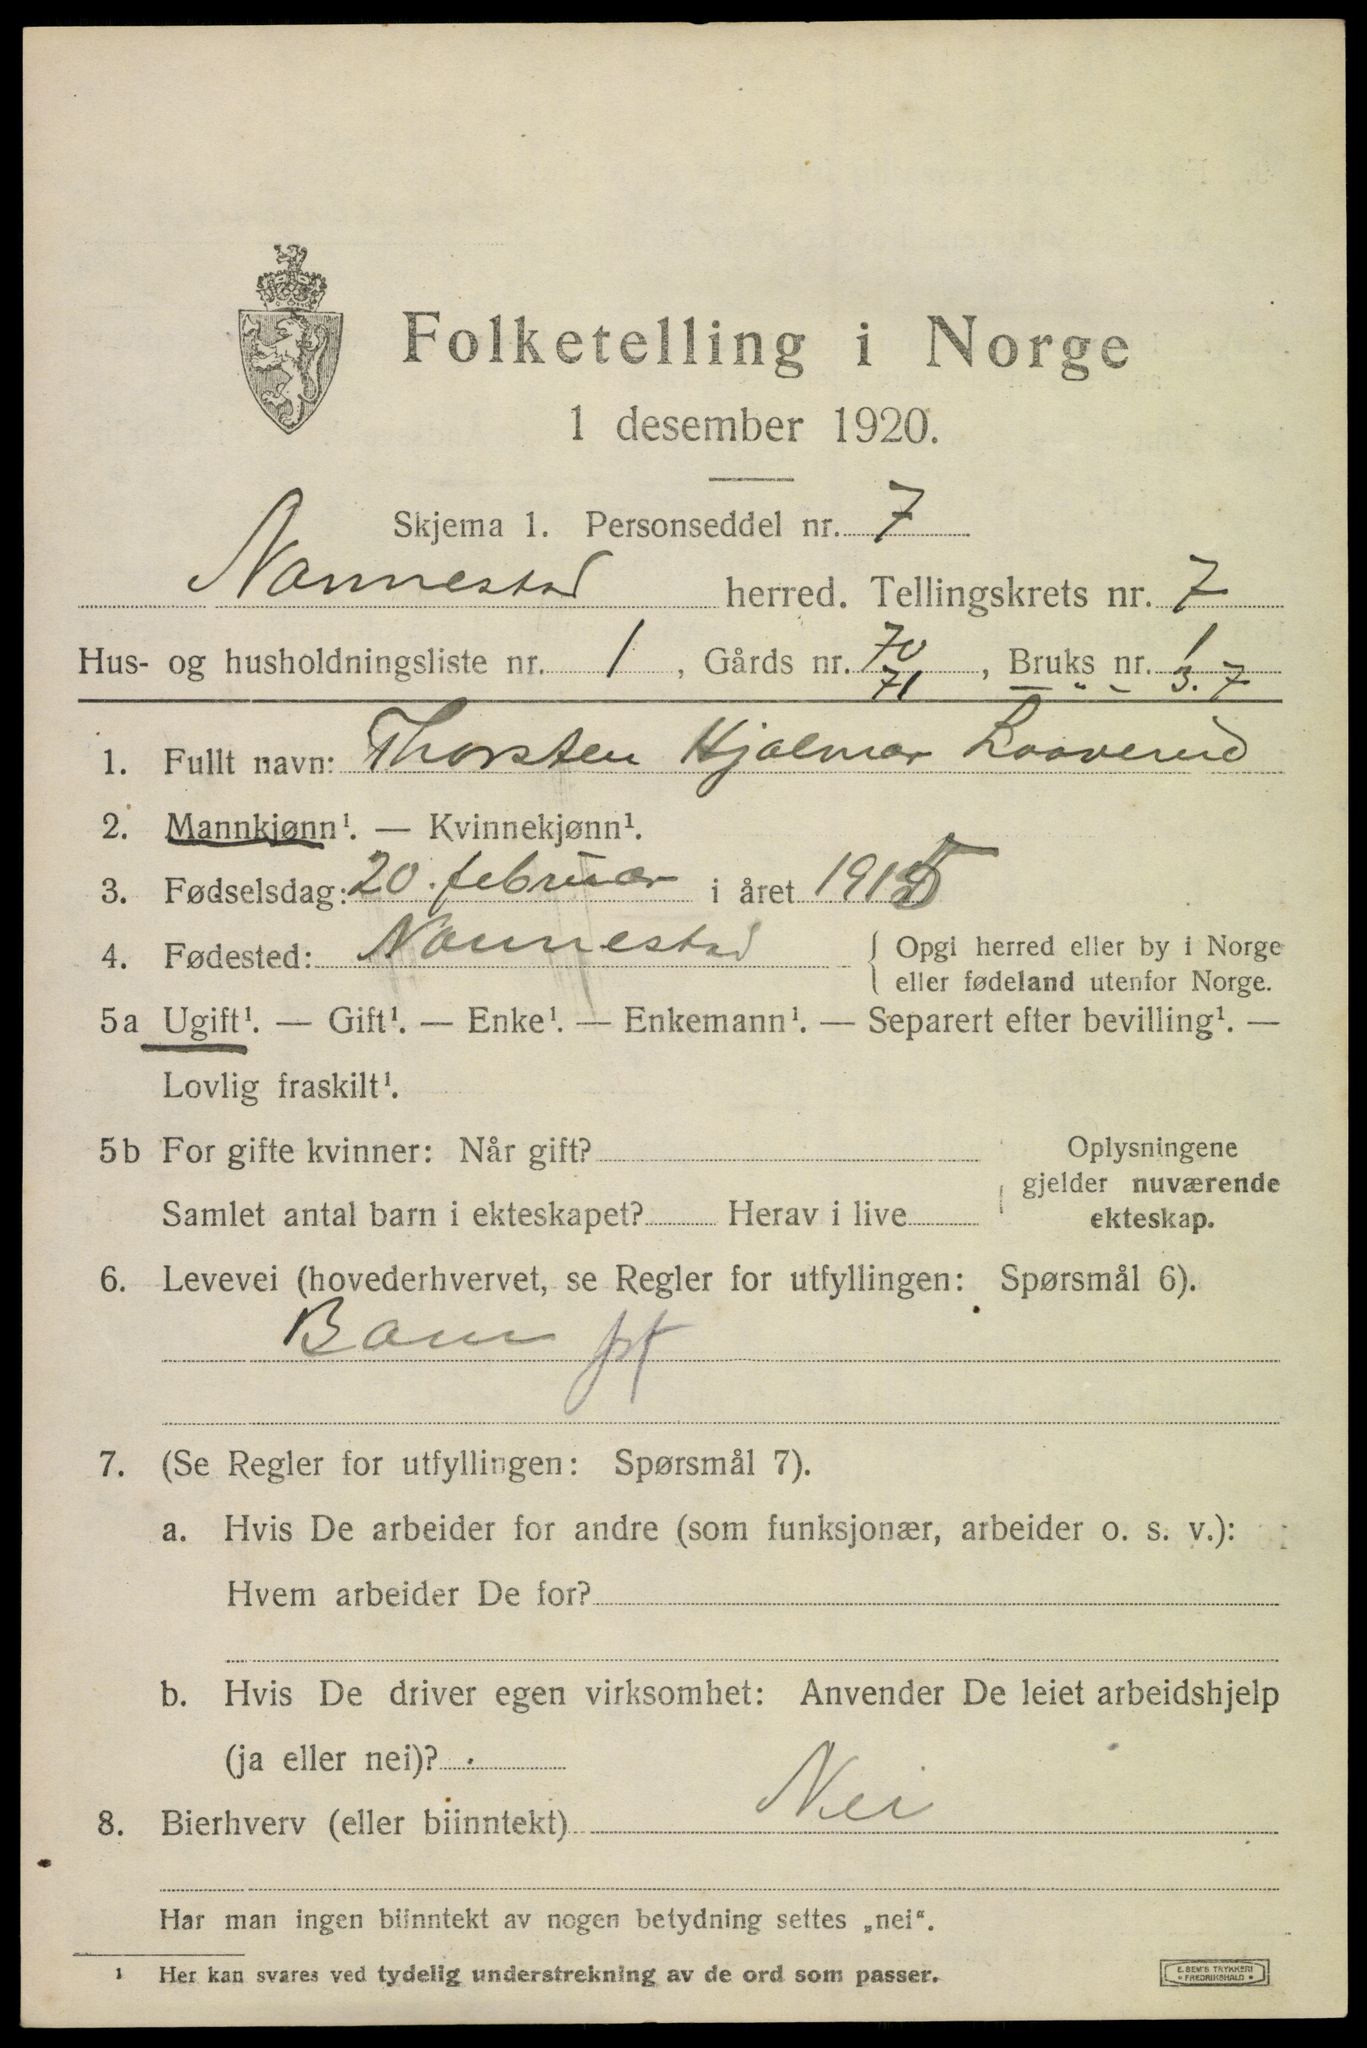 Folketelling i Norge
1 desember 1920.
Skjema 1. Personseddel nr. 7
Nannestad herred. Tellingskrets nr. 7
Hus- og husholdningsliste nr. 1, Gårds nr. 70, Bruks nr. 1
71 — " — 3. 7
1. Fullt navn: Thorsten Hjalmar Laaverud
2. Mannkjønn¹. — Kvinnekjønn¹.
3. Fødselsdag: 20. februar i året 1915
4. Fødested: Nannestad { Opgi herred eller by i Norge
eller fødeland utenfor Norge.
5a Ugift¹. — Gift¹. — Enke¹. — Enkemann¹. — Separert efter bevilling¹. —
Lovlig fraskilt¹.
5b For gifte kvinner: Når gift? Oplysningene
gjelder nuværende
Samlet antal barn i ekteskapet? Herav i live ekteskap.
6. Levevei (hovederhvervet, se Regler for utfyllingen: Spørsmål 6).
Barn
7. (Se Regler for utfyllingen: Spørsmål 7).
a. Hvis De arbeider for andre (som funksjonær, arbeider o. s. v.):
Hvem arbeider De for?
b. Hvis De driver egen virksomhet: Anvender De leiet arbeidshjelp
(ja eller nei)?
8. Bierhverv (eller biinntekt) Nei
Har man ingen biinntekt av nogen betydning settes „nei“.
¹ Her kan svares ved tydelig understrekning av de ord som passer.
E. SEM'S TRYKKERI
• FREDRIKSHALD •